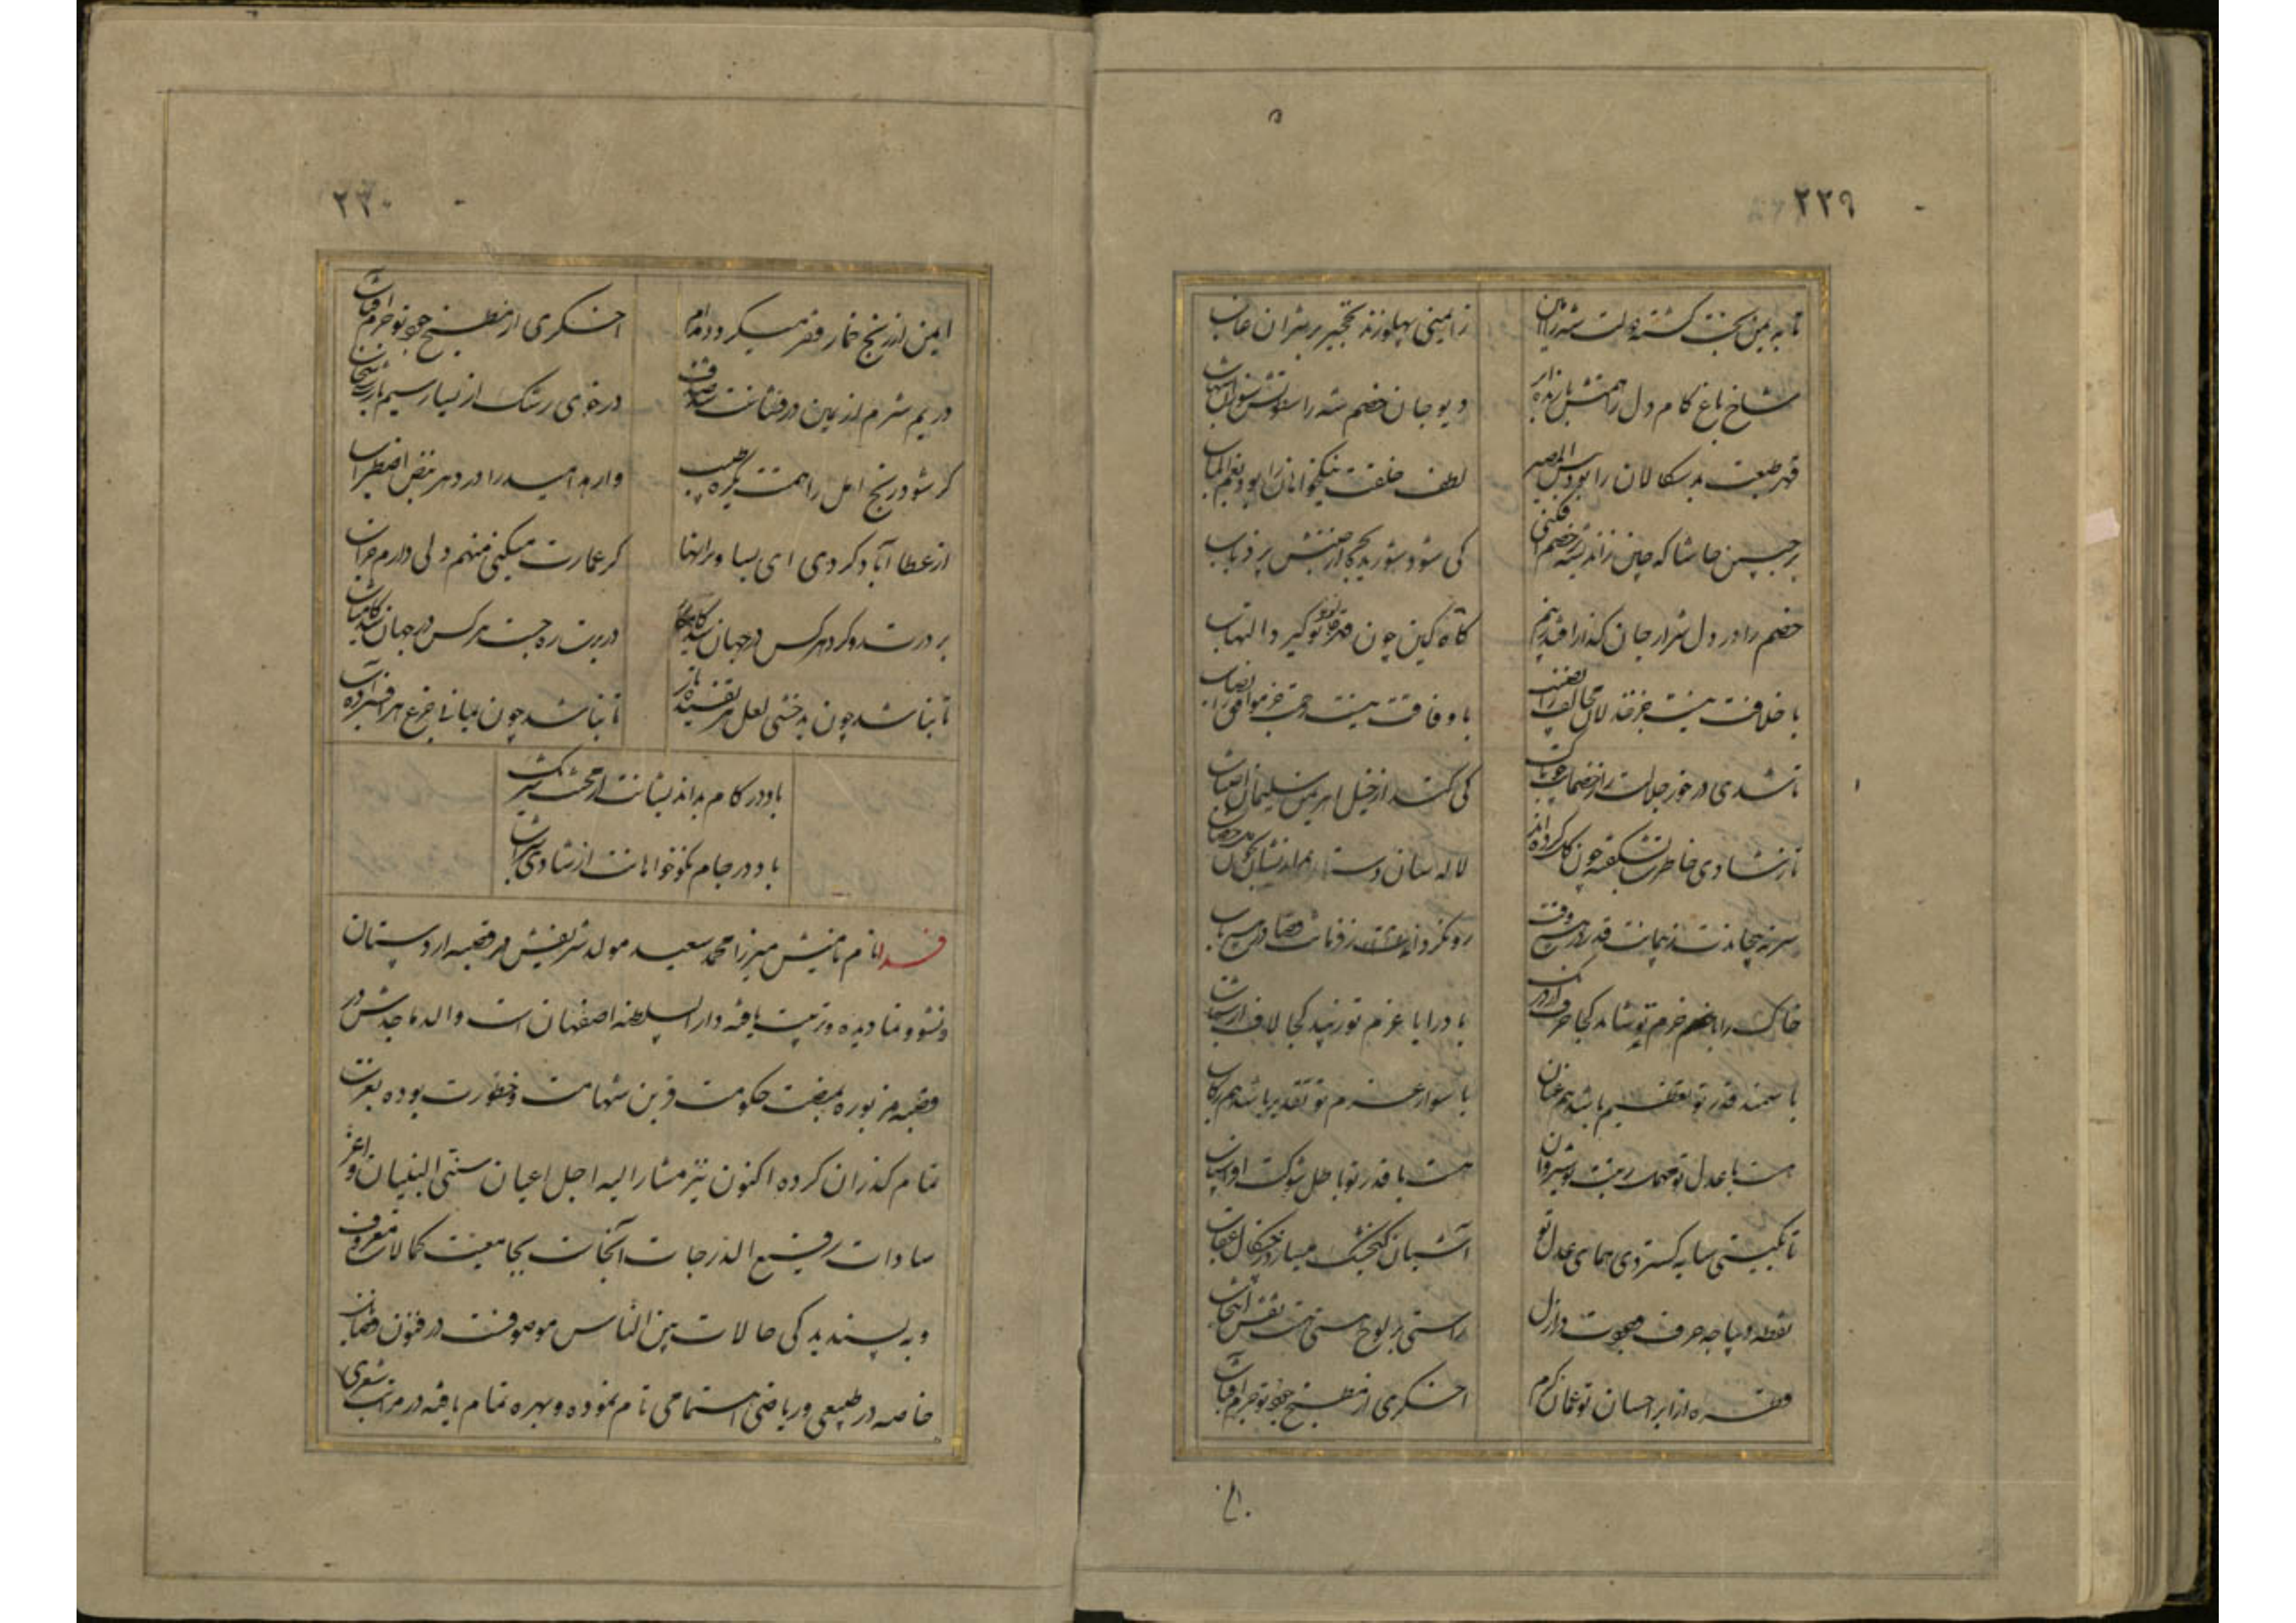 ۲۲۹
تا به یمن بخت گشته دولت شیرزا
ز ایمنی پهلو زند نخجیر بر شیران غاب
شاخ باغ کام دل را همتش بارنده ابر
دیو جان خصم شه را سوزان شهاب
قهر طبعت بدسگالان را بود بئس المصیر
لطف خلقت نیکخواهان را بود نعم المآب
بر جبین حاشا که چین ز اندیشه خصم افکنی
کی شود شوریده بحر از جنبش پر ذباب
خصم را در دل شرار جان گداز افتد ز بیم
گاه کین چون قهر تو گیرد التهاب
با خلافت نیست جز خذلان مخالف را نصیب
با وفاقت نیست جز موافق را
تا شدی در خور جلالت را ز خصمان
کی کند از خیل اهریمن سلیمان اجتناب
تا ز شادی خاطرت بشکفته چون گل کرده‌اند
لاله سان دستار
سر نه پیچاندت ز پیمانت قدر در هیچ وقت
رو نگرداند ز فرمانت قضا در هیچ باب
خاک را با حزم تو شاید کجا حرف درنگ
باد را با عزم تو زیبد کجا لاف شتاب
با سمند قدر تو تعظیم باشد هم عنان
با سوار عزم تو تقدیر باشد هم رکاب
هست با عدل تو مهمل نوشیروان
هست با قدر تو باطل شوکت افراسیاب
تا بگیتی سایه گستردی همای عدل تو
آشیان گنجشک میسازد ز چنگال عقاب
نقطه دیباجه حرف وجودت در ازل
راستی بر لوح هستی هست نقش انتخاب
قطره از ابر احسان تو عمان کرم
اخگری از مطبخ جود تو جرم آفتاب
۲۳۰
ایمن از رنج خمار فقر میگردد مدام
اخگری از مطبخ جود تو جرم آفتاب
در یم شرم از یمین در فشانت صدف
در خوی رشک از یسار سیم بارت سحاب
گر شود رنج امل را همتت یکره طبیب
وارهد امید را در دهر نبض از اضطراب
از عطا آباد کردی ای بسا ویرانها
گر عمارت میکنی منهم دلی دارم خراب
بر درت رو کرد هر کس در جهان شد کامجو
در برت ره جست هر کس در جهان شد کامیاب
تا نباشد چون بدخشی لعل هر تفسیده
تا نباشد چون یمانی جزع هر افسرده آب
باد در کام بداندیشانت از محنت شرنگ
باد در جام نکوخواهانت از شادی شراب
فدا نام نامیش میرزا محمد سعید مولد شریفش در قصبه اردستان
و نشو و نما دیده و تربیت یافته دار السلطنه اصفهان است والد ماجدش در
قصبه مزبوره بمنصب حکومت قرین شهامت و خطورت بوده بعزت
تمام گذران کرده اکنون نیز مشار الیه اجل اعیان سنی البنیان و اعز
سادات رفیع الدرجات آنجاست بجامعیت کمالات معروف
و به پسندیدگی حالات بین الناس موصوفست در فنون فضایل
خاصه در طبیعی و ریاضی اهتمامی تام نموده و بهره تمام یافته در مراتب شعری